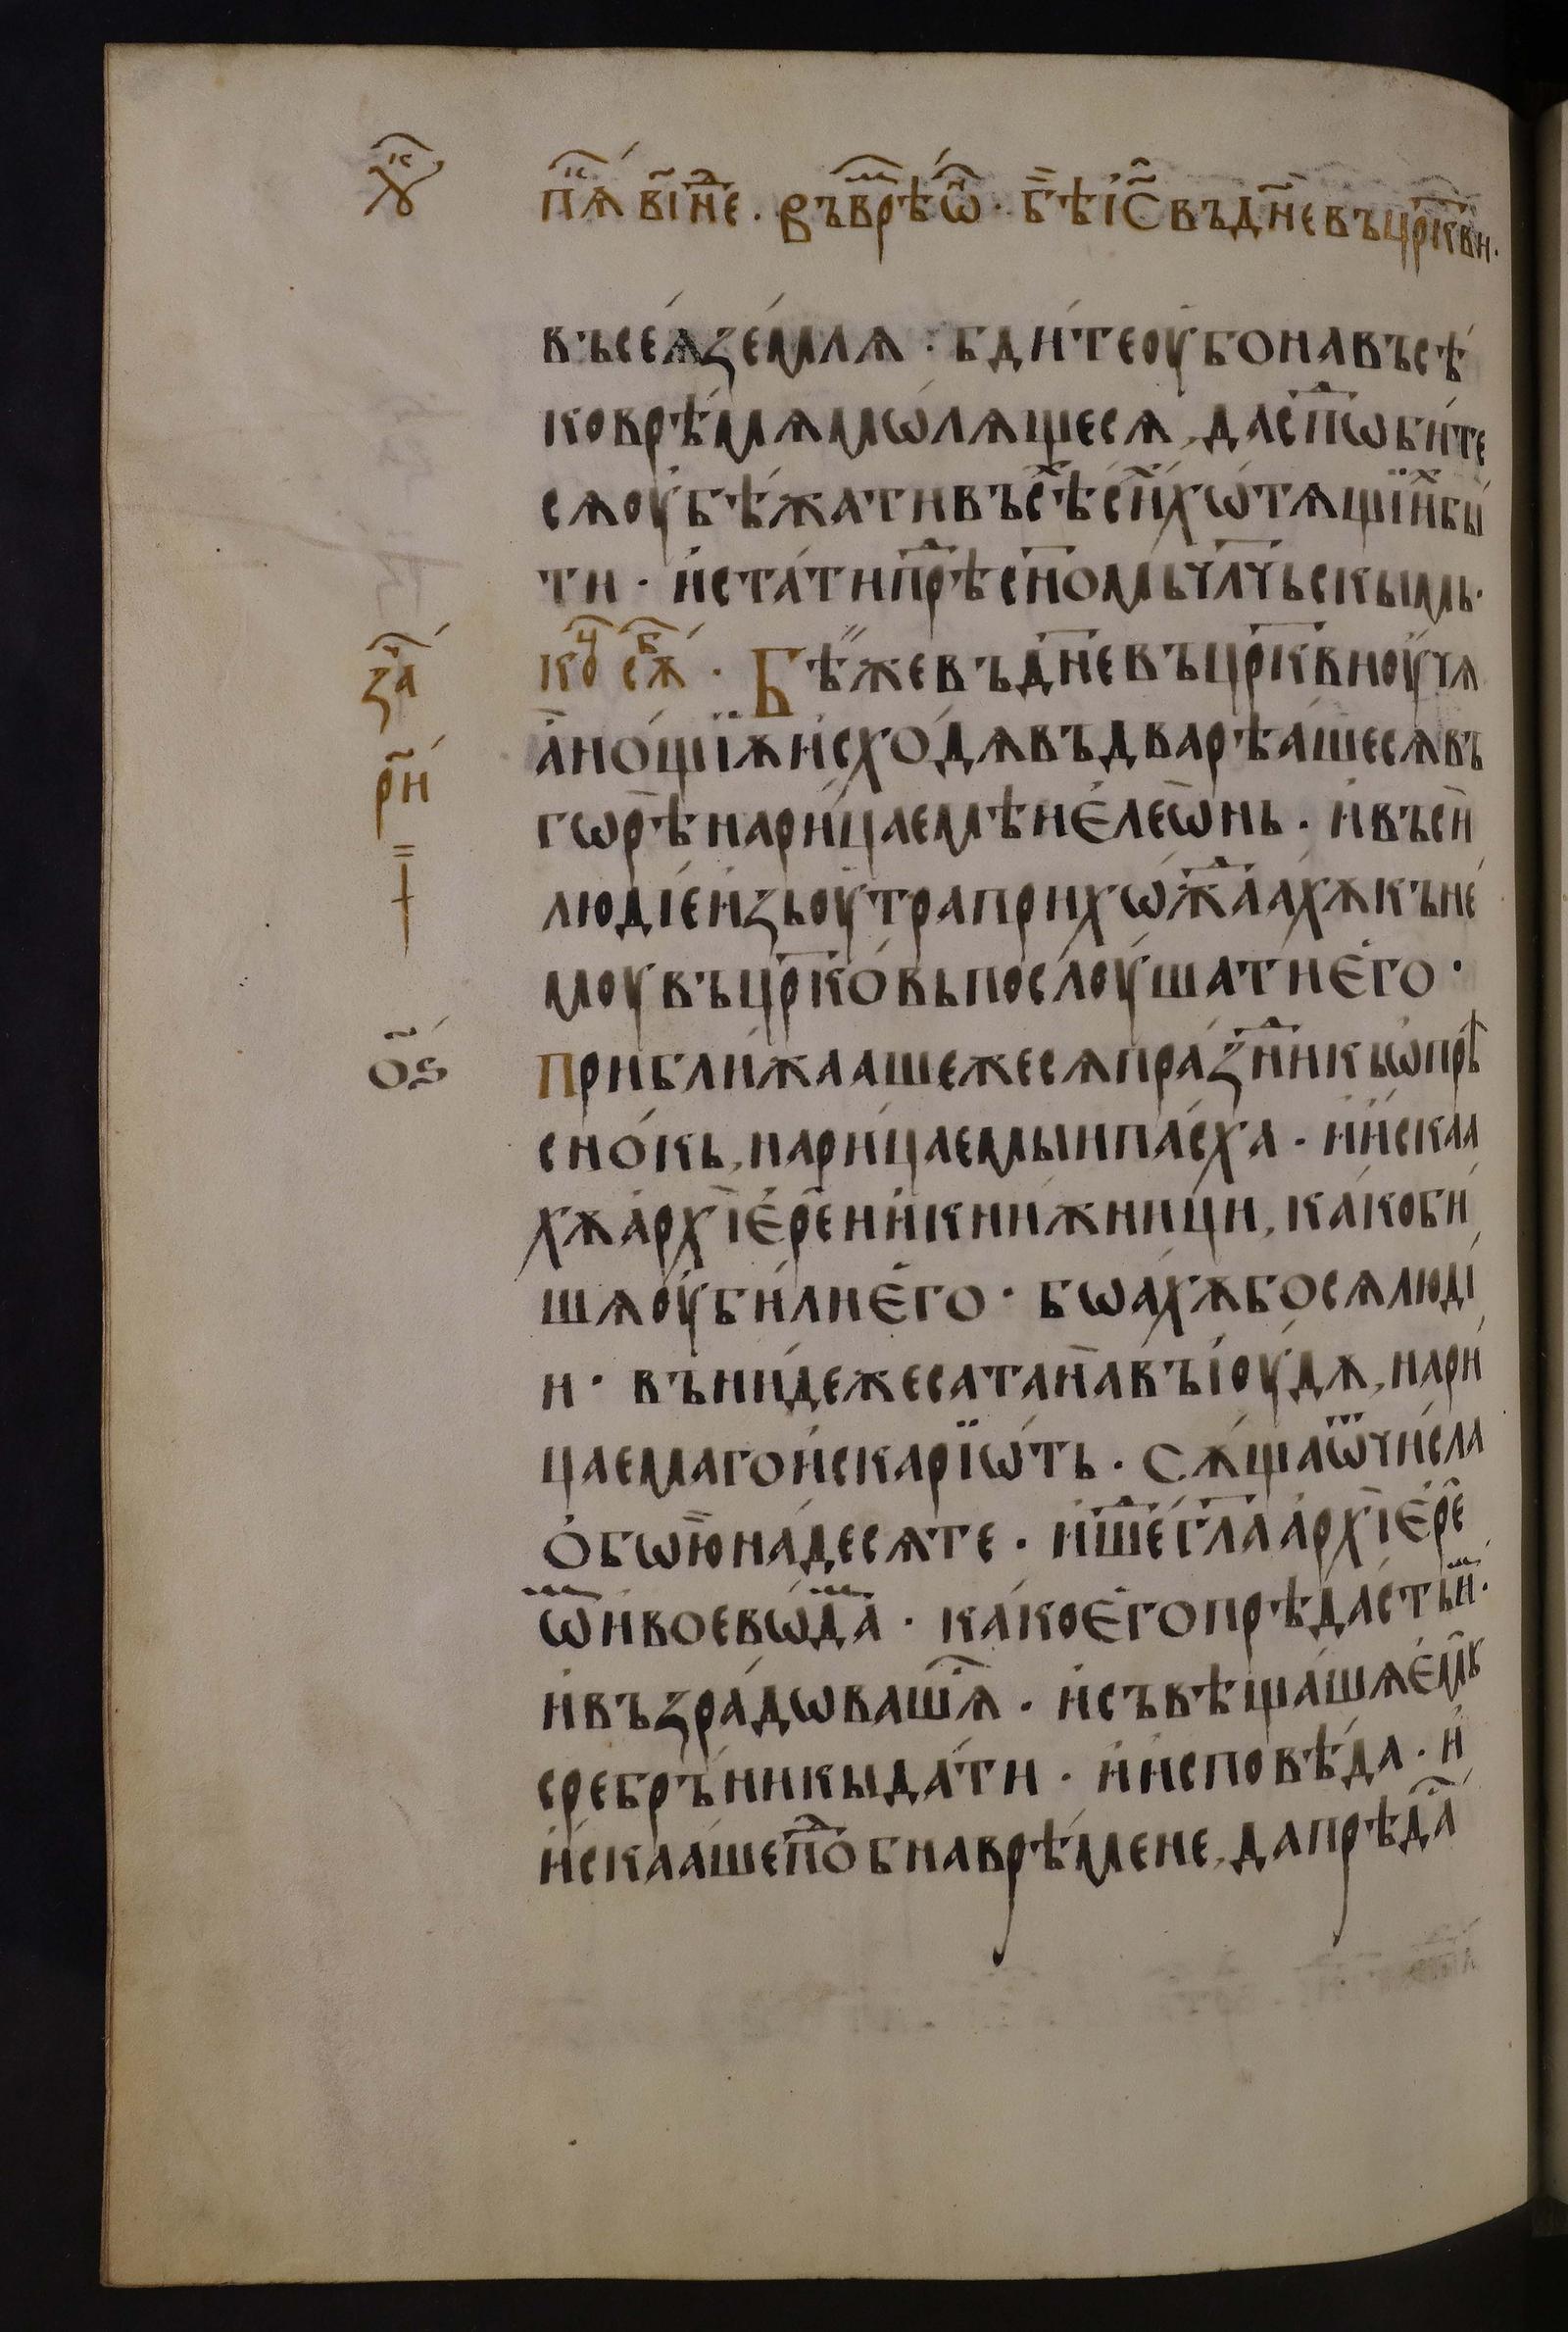 ѵ҃ пѧ҃ в҃і н҃е · Въ врѣ ѡ҃ · бѣ і҃с въ дн҃е въ цркви ·
въсеѧ́ землѧ · бди́те оубо на въсѣ́
ко врѣ́мѧ мѡлѧщесѧ, да спⷣѡби́те
сѧ оубѣ́жати въсѣⷯ сиⷯ хѡ́тѧщіиⷯ бы́
ти · и҆ ста́ти прѣⷣ сн҃омь чл҃чьскымь ·
за́ коⷰ сѫⷠ · Бѣ́ же въ дн҃е въ цр҃кви оучѧ
рн҃ а҆ но́щіѫ и҆сходѧ въдварѣа́шесѧ въ
горѣ̀ нарица́емѣи є҆леѡ̀нь · и҆ въси
людіе и҆зьоутра прихѡжⷣааха къ не́
моу въ цр҃ко́вь послоу́шати є҆го ·
ѻ҃ѕ Приближаашежесѧ празⷣникь ѡ҆прѣ
сно́кь, нарица́емыи па́сха · и҆ и҆скаа
хѫ а҆рхіе҆ре́и и҆ кни́жници, ка́ко би́
шѧ оу҆би́ли є҆го · боаахѫ босѧ люді
и · въни́де же сатана̀ въ і҆оу́дѫ, нари
цаемаго и҆скаріѡ́ть · сѫ́ща ѿ числа
ѻ҆бою̀на́десѧте · и҆ шеⷣ гл҃а а҆рхіе҆ре
ѡⷨ и҆ воевѡ́даⷨ · ка́ко є҆го прѣда́сть иⷨ ·
и҆ въ́зра́довашѧⷭ · и҆ съвѣща́шѧ є҆мꙋ
сребръ́никы да́ти · и҆ и҆сповѣ́да · и҆
и҆скаа́ше поⷣбна врѣ́мене, да прѣда́